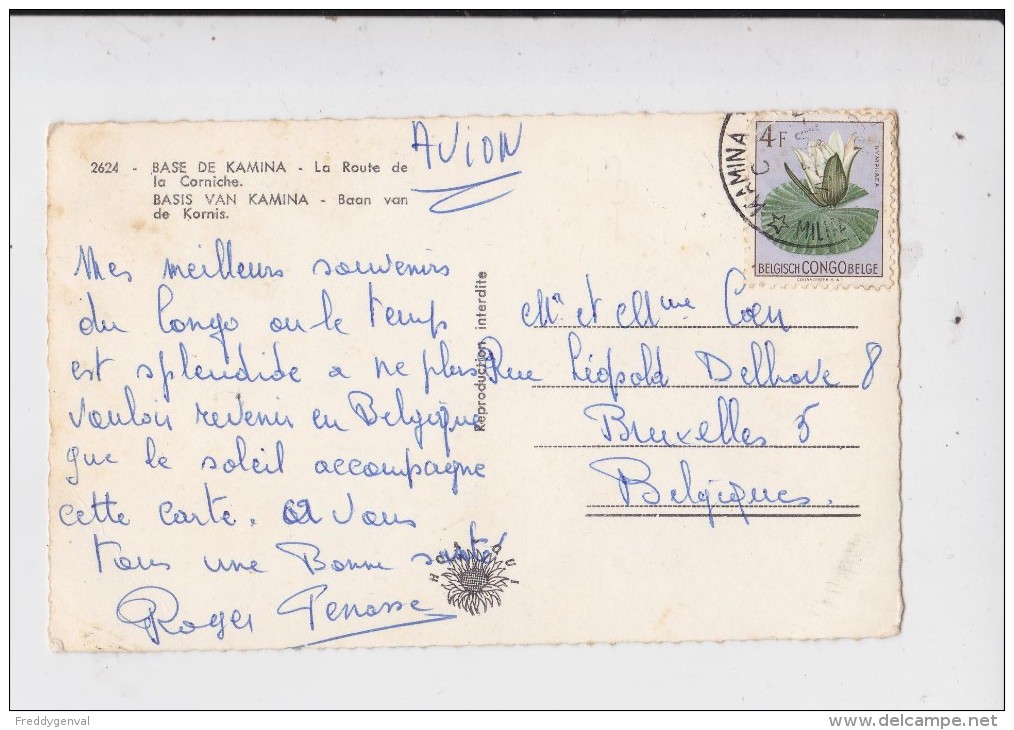 AVION
2624 - BASE DE KAMINA - La Route de
la Corniche.
BASIS VAN KAMINA - Baan van
de Kornis.
Mes meilleurs souvenirs
du Congo ou le temps
est splendide a ne plus
vouloir revenir en Belgique
que le soleil accompagne
cette carte. a vous
tous une Bonne santé
Roger
Reproduction interdite
HOA-QUI
KAMINA
MILIT
4F
NYMPHAEA
BELGISCH CONGO BELGE
COURVOISIER S.A.
Mr et Mme Coen
Rue Léopold Delhove 8
Bruxelles 5
Belgiques.
Freddygenval
delcampe.net